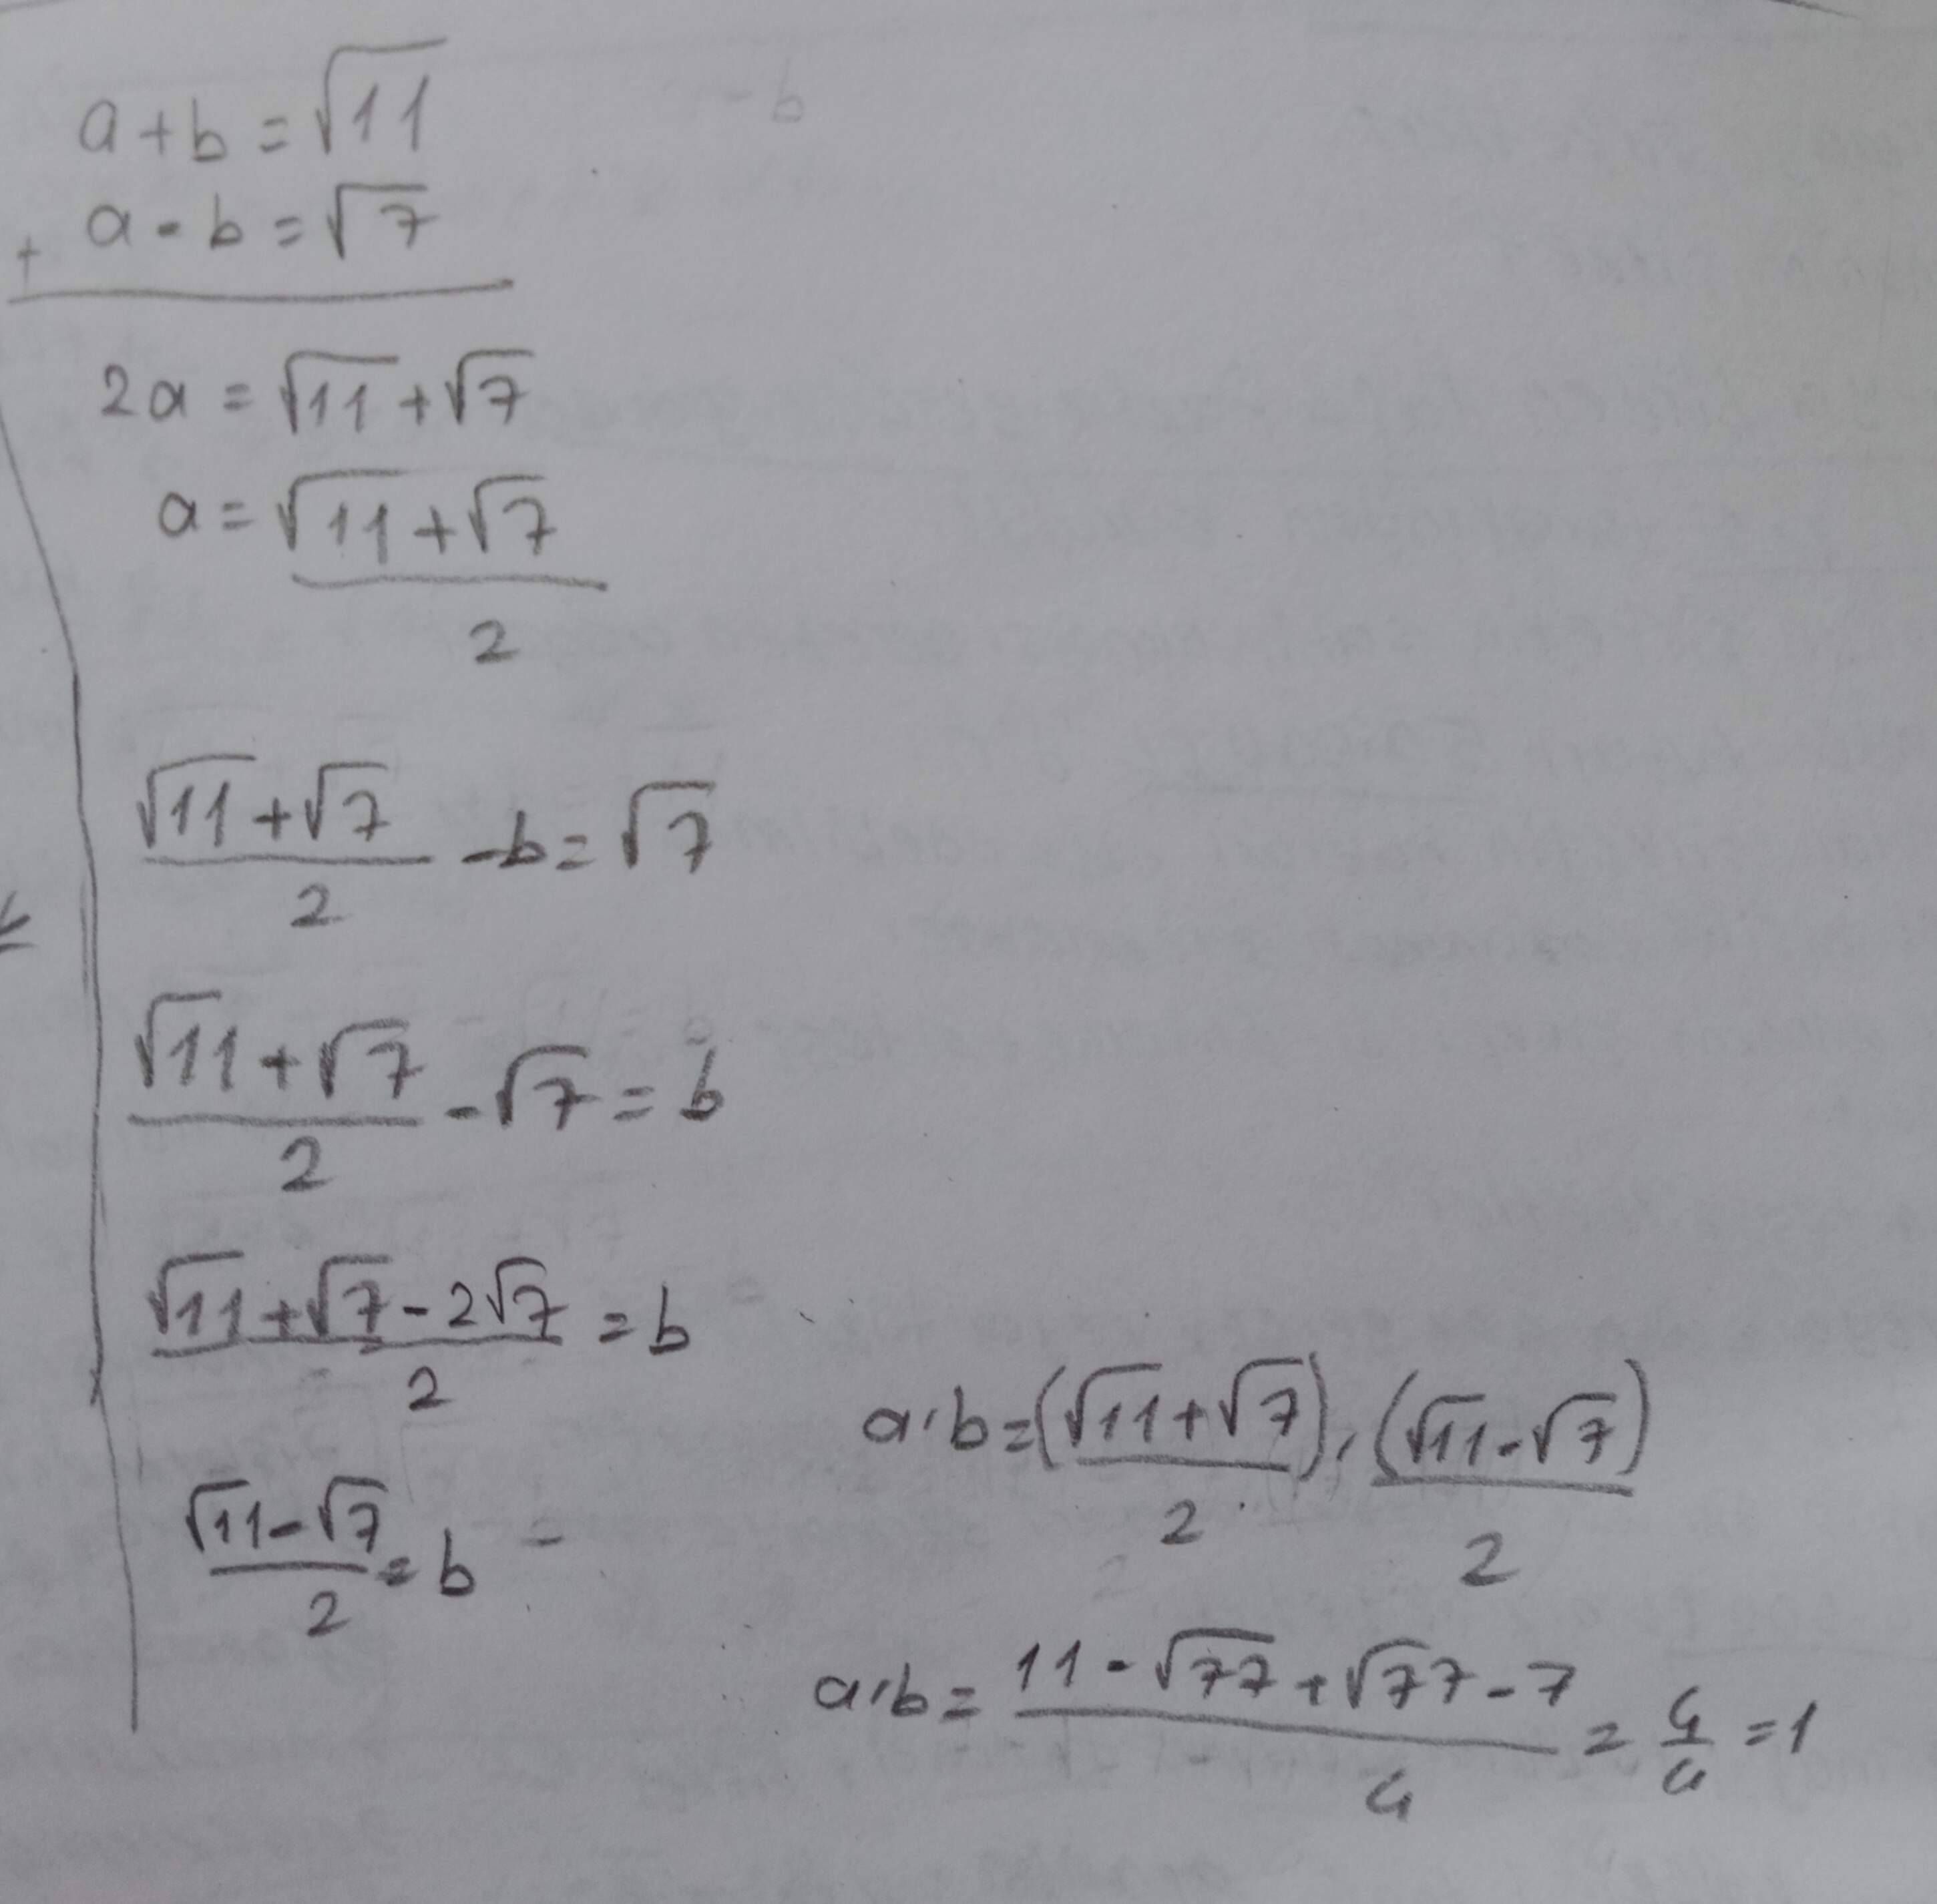 a+b=√11
+ a-b=√7
2a=√11+√7
a=√11+√7
2
√11+√7 -b=√7
2
√11+√7 -√7=b
2
√11+√7-2√7 =b
2
√11-√7 =b
2
a·b=(√11+√7)·(√11-√7)
2 2
a·b= 11-√77+√77-7 = 4 =1
4 4